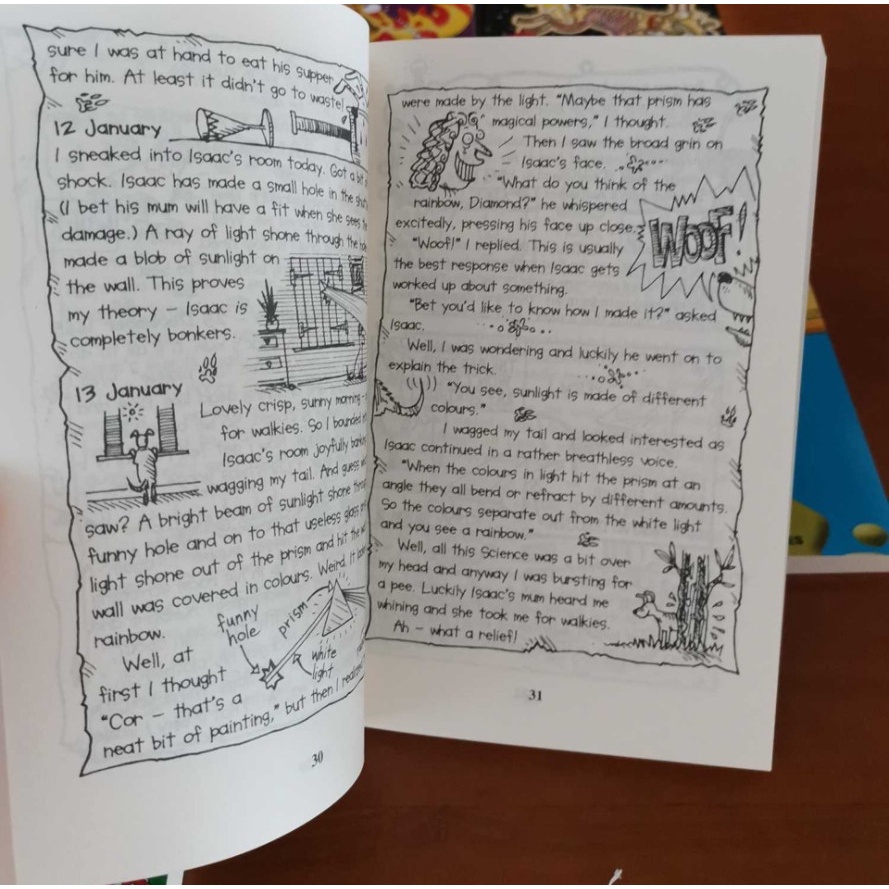 sure I was at hand to eat his supper
for him. At least it didn't go to waste!
12 January
I sneaked into Isaac's room today. Got a bit
shock. Isaac has made a small hole in the
(I bet his mum will have a fit when she sees
damage.) A ray of light shone through the
made a blob of sunlight on
the wall. This proves
my theory – Isaac is
completely bonkers.
13 January
Lovely crisp, sunny morning
for walkies. So I bounded
Isaac's room joyfully
wagging my tail. And guess
saw? A bright beam of sunlight shone
funny hole and on to that useless glass
light shone out of the prism and hit the
wall was covered in colours. Weird. It
rainbow.
funny
hole
prism
white
light
Well, at
first I thought
"Cor – that's a
neat bit of painting," but then I
30
were made by the light. "Maybe that prism has
magical powers," I thought.
Then I saw the broad grin on
Isaac's face.
"What do you think of the
rainbow, Diamond?" he whispered
excitedly, pressing his face up close.
WOOF!
"Woof!" I replied. This is usually
the best response when Isaac gets
worked up about something.
"Bet you'd like to know how I made it?" asked
Isaac.
Well, I was wondering and luckily he went on to
explain the trick.
"You see, sunlight is made of different
colours."
I wagged my tail and looked interested as
Isaac continued in a rather breathless voice.
"When the colours in light hit the prism at an
angle they all bend or refract by different amounts.
So the colours separate out from the white light
and you see a rainbow."
Well, all this Science was a bit over
my head and anyway I was bursting for
a pee. Luckily Isaac's mum heard me
whining and she took me for walkies.
Ah – what a relief!
31